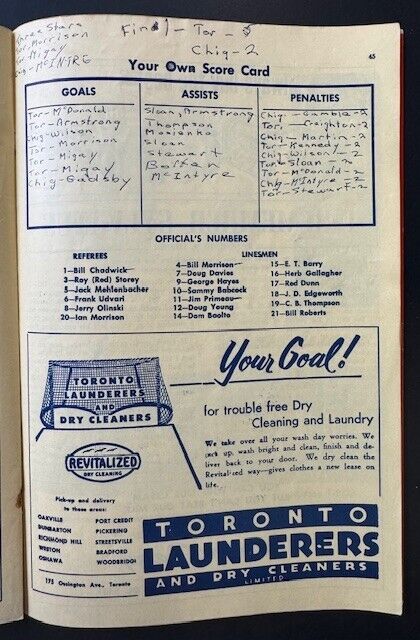 Three Stars
Tor. Morrison
Tor Migay
Chig-McINTRE
Final - Tor - 5
Chig - 2
45
Your Own Score Card
GOALS
Tor-McDonald
Tor-Armstrong
Chig-Wilson
Tor-Morrison
Tor-Migay
Tor-Migay
Chig-Gadsby
ASSISTS
Sloan, Armstrong
Thompson
Mosienko
Sloan
Stewart
Bolton
McIntyre
PENALTIES
Chig-Gamble-2
Tor, Creighton-2
Chig-Martin-2
Tor-Kennedy-2
Chig-Wilson-2
Tor Sloan-2
Tor-McDonald-2
Chig-McIntyre-2
Tor-Stewart-2
OFFICIAL'S NUMBERS
REFEREES
1—Bill Chadwick
3—Roy (Red) Storey
5—Jack Mehlenbacher
6—Frank Udvari
8—Jerry Olinski
20—Ian Morrison
LINESMEN
4—Bill Morrison
7—Doug Davies
9—George Hayes
10—Sammy Babcock
11—Jim Primeau
12—Doug Young
14—Dom Boolto
15—E. T. Barry
16—Herb Gallagher
17—Red Dunn
18—J. D. Edgeworth
19—C. B. Thompson
21—Bill Roberts
TORONTO
LAUNDERERS
AND
DRY CLEANERS
REVITALIZED
DRY CLEANING
Your Goal!
for trouble free Dry
Cleaning and Laundry
We take over all your wash day worries. We
pick up, wash bright and clean, finish and de-
liver back to your door. We dry clean the
Revitalized way—gives clothes a new lease on
life.
Pick-up and delivery
to these areas:
OAKVILLE
DUNBARTON
RICHMOND HILL
WESTON
OSHAWA
PORT CREDIT
PICKERING
STREETSVILLE
BRADFORD
WOODBRIDGE
175 Ossington Ave., Toronto
TORONTO
LAUNDERERS
AND DRY CLEANERS
LIMITED